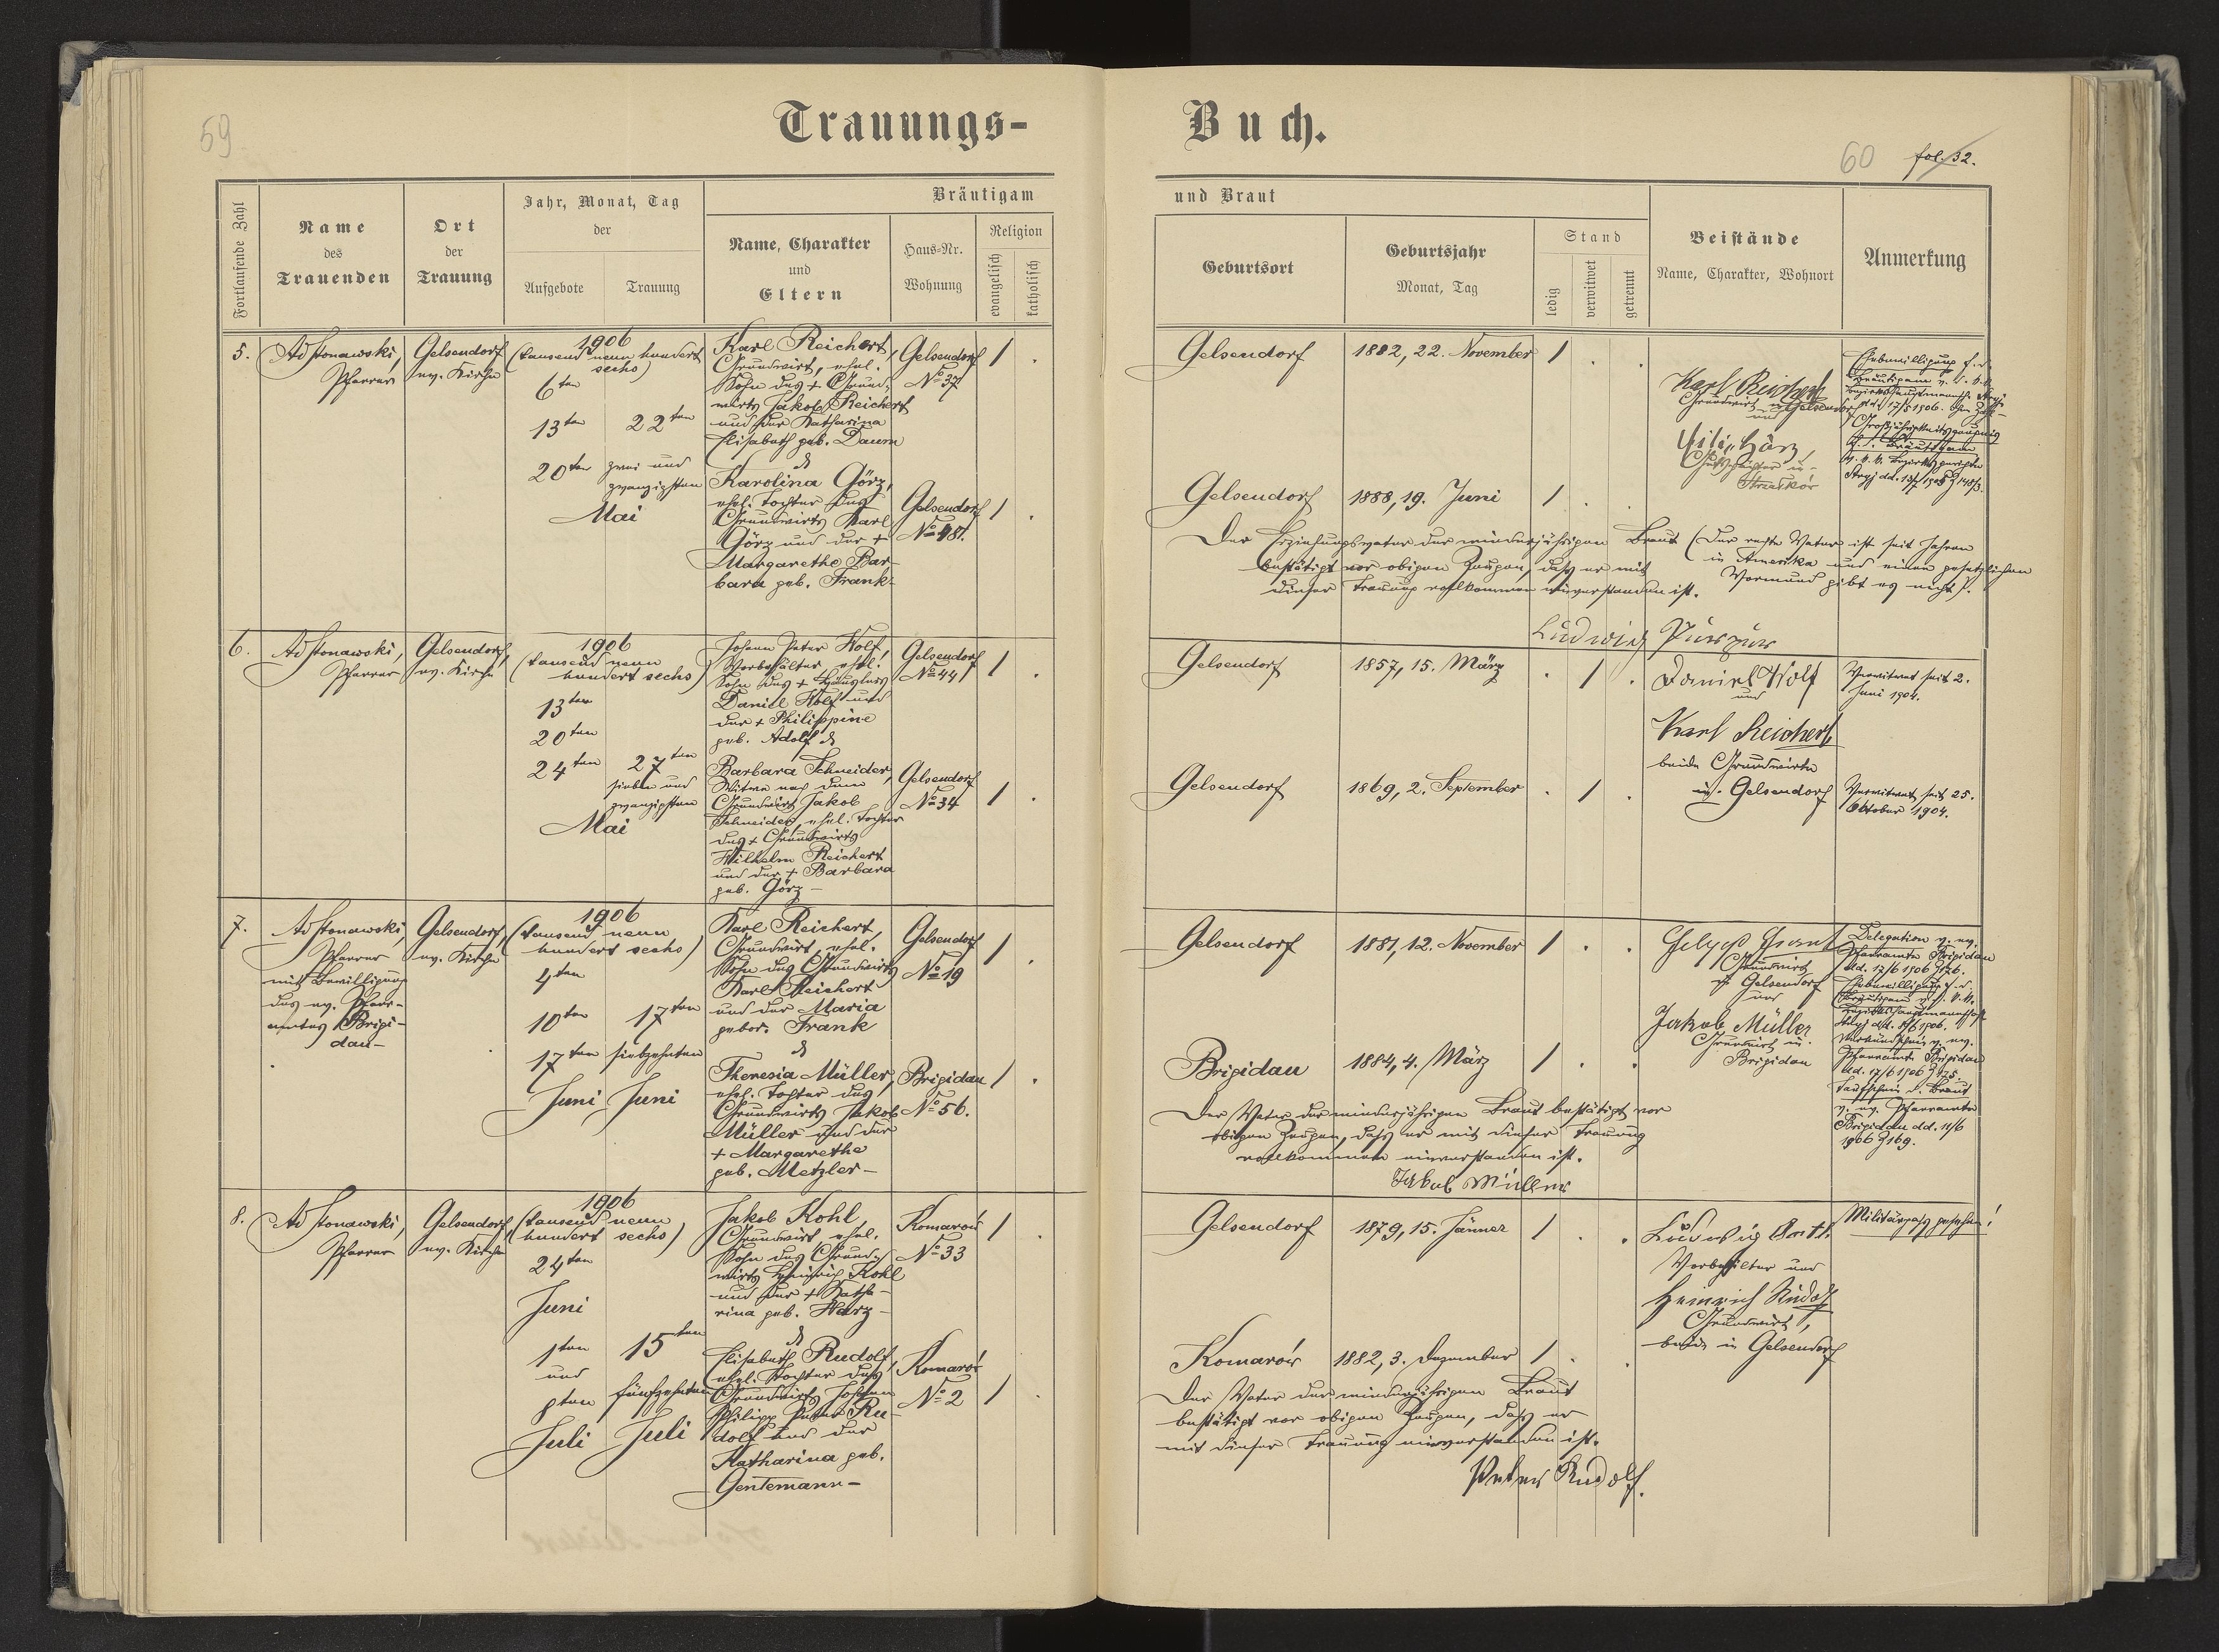 59
Trauungs-
Buch.
60 fol. 32.
Fortlaufende Zahl
Name
des
Trauenden
Ort
der
Trauung
Jahr, Monat, Tag
der
Aufgebote
Trauung
Bräutigam
Name, Charakter
und
Eltern
Haus-Nr.
Wohnung
Religion
evangelisch
katholisch
und Braut
Geburtsort
Geburtsjahr
Monat, Tag
Stand
ledig
verwitwet
getrennt
Beistände
Name, Charakter, Wohnort
Anmerkung
5.
Pfarrer
Gelsendorf
ev. Kirche
1906
(tausend neun hundert
sechs)
6ten
13ten 22ten
20ten zwei und
zwanzigsten
Mai
Karl Reichert,
Grundwirt, ehel.
Sohn des + Grund-
wirts Jakob Reichert
und der Katharina
Elisabeth geb. Daum
&
Karolina Görz,
ehel. Tochter des
Grundwirts Karl
Görz und der +
Margarethe Bar-
bara geb. Frank-
Gelsendorf
No 37
1 .
Gelsendorf
No 81.
1 .
Gelsendorf
1882, 22. November
1 . .
Gelsendorf
1888, 19. Juni
1 . .
Karl Reichert
Grundwirt in Gelsendorf
und
Görz,
Ehebewilligung f. d.
Bräutigam v. d. k. k.
Bezirkshauptmannsch. Stryj
dd. 17/5 1906.
Bräutigam
v. k. k. Bezirksgerichte
Der Erziehungsvater der minderjährigen Braut (Der rechte Vater ist seit Jahren
in Amerika und einen gesetzlichen
Vormund gibt es nicht).
bestätigt vor obigen Zeugen, dass er mit
dieser Trauung vollkommen einverstanden ist.
Ludwig Purpur
6.
Pfarrer
Gelsendorf,
ev. Kirche
1906
(tausend neun
hundert sechs)
13ten
20ten
24ten 27ten
sieben und
zwanzigsten
Mai
Johann Peter Wolf,
Vorbehälter, ehel.
Sohn des + Häuslers
Daniel Wolf und
der + Philippine
geb. Adolf &
Barbara Schneider,
Witwe nach dem
Grundwirt Jakob
Schneider, ehel. Tochter
des + Grundwirts
Wilhelm Reichert
und der + Barbara
geb. Görz –
Gelsendorf
No 44
1 .
Gelsendorf
No 34
1 .
Gelsendorf
1857, 15. März
. 1 .
Gelsendorf
1869, 2. September
. 1 .
Daniel Wolf
und
Karl Reichert
beide Grundwirte
in Gelsendorf
Verwitwet seit 2.
Juni 1904.
Verwitwet seit 25.
Oktober 1904.
7.
Pfarrer
mit Bewilligung
des ev. Pfarr-
amtes Brigi-
dau-
Gelsendorf,
ev. Kirche
1906
(tausend neun
hundert sechs)
4ten
10ten 17ten
17ten siebzehnten
Juni Juni
Karl Reichert,
Grundwirt, ehel.
Sohn des Grundwirts
Karl Reichert
und der Maria
gebor. Frank
&
Theresia Müller,
ehel. Tochter des
Grundwirts Jakob
Müller und der
+ Margarethe
geb. Metzler –
Gelsendorf
No 19
1 .
Brigidau
No 56.
1 .
Gelsendorf
1881, 12. November
1 . .
Brigidau
1884, 4. März
1 . .
Grundwirt
in Gelsendorf
und
Jakob Müller
Grundwirt in
Brigidau
Delegation v. ev.
Pfarramte Brigidau
dd. 17/6 1906 Z 176.
Ehebewilligung f. d.
Bräutigam v. d. k. k.
Bezirkshauptmannschaft
Verkündschein v. ev.
Pfarramte Brigidau
dd. 17/6 1906 Z 175.
Taufschein d. Braut
v. ev. Pfarramte
Brigidau dd. 11/6
1906 Z 169.
Der Vater der minderjährigen Braut bestätigt vor
obigen Zeugen, dass er mit dieser Trauung
vollkommen einverstanden ist.
Jakob Müller
8.
Pfarrer
Gelsendorf,
ev. Kirche
1906
(tausend neun
hundert sechs)
24ten
Juni
1ten 15ten
und
8ten fünfzehnten
Juli Juli
Jakob Kohl,
Grundwirt, ehel.
Sohn des Grund-
wirts Heinrich Kohl
und der + Katha-
rina geb. Harz –
&
Elisabeth Rudolf,
ehel. Tochter des
Grundwirts Johann
Philipp Peter Ru-
dolf und der
Katharina geb.
Gentemann –
Komarów
No 33
1 .
Komarów
No 2
1 .
Gelsendorf
1879, 15. Jänner
1 . .
Komarów
1882, 3. Dezember
1 . .
Ludwig
Vorbehälter und
Heinrich Rudolf
Grundwirt,
beide in Gelsendorf
Militärpass gesehen!
Der Vater der minderjährigen Braut
bestätigt vor obigen Zeugen, dass er
mit dieser Trauung einverstanden ist.
Peter Rudolf.